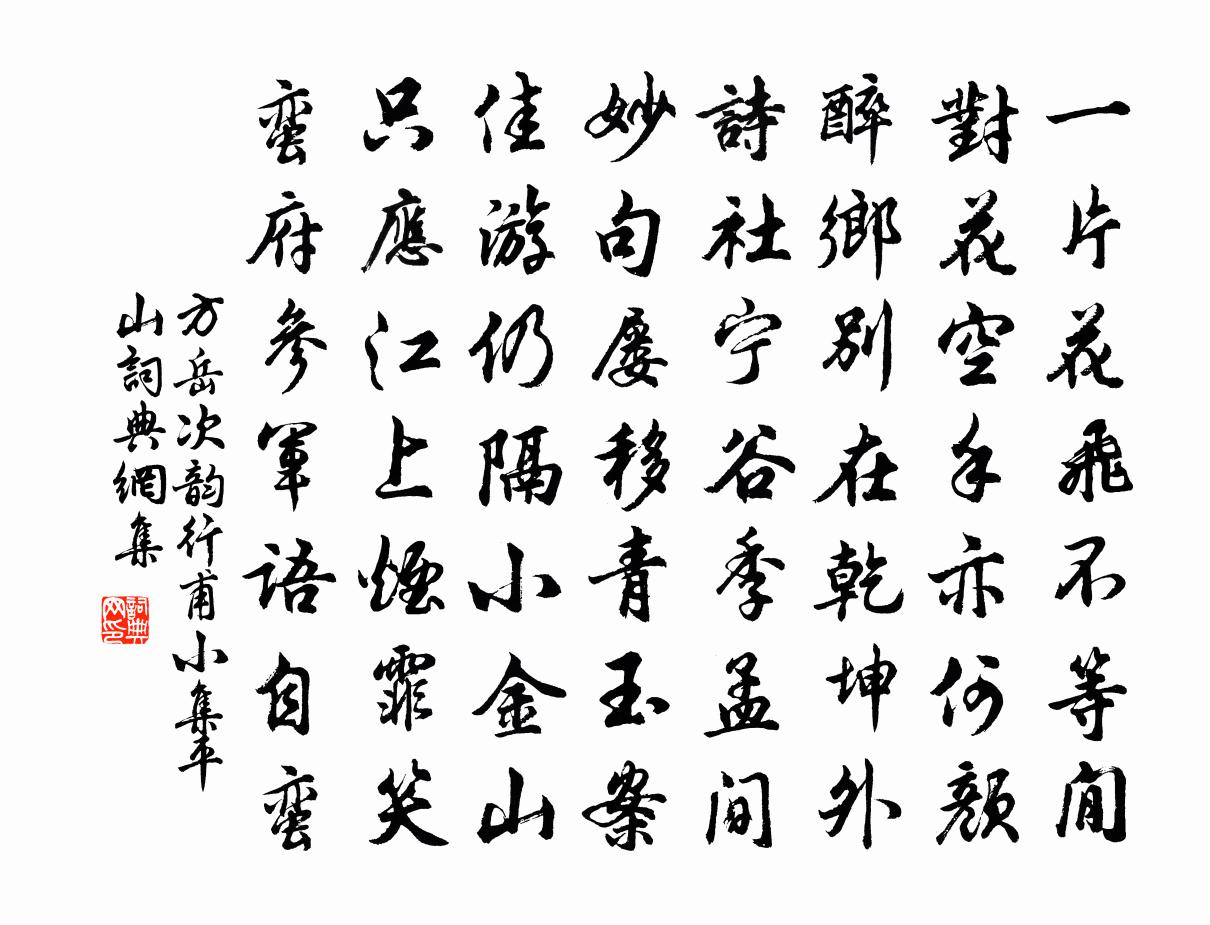 一片花飛不等閒
對花空手亦何顏
醉鄉別在乾坤外
詩社宁谷季孟間
妙句屡移青玉案
佳游仍隔小金山
只應江上煙霏笑
蛮府參軍語自蛮
方岳次韵行甫小集平
山詞典網集
詞典网印